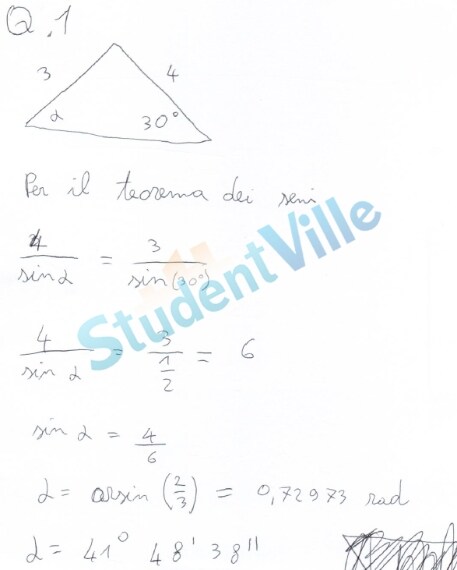 Q.1
3 4
α 30°
Per il teorema dei seni
4/sin α = 3/sin(30°)
4/sin α = 3/(1/2) = 6
sin α = 4/6
α = arsin (2/3) = 0,72973 rad
α = 41° 48' 38"
StudentVille